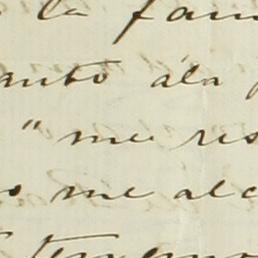 la fam
anto á la
" me res
o me alc